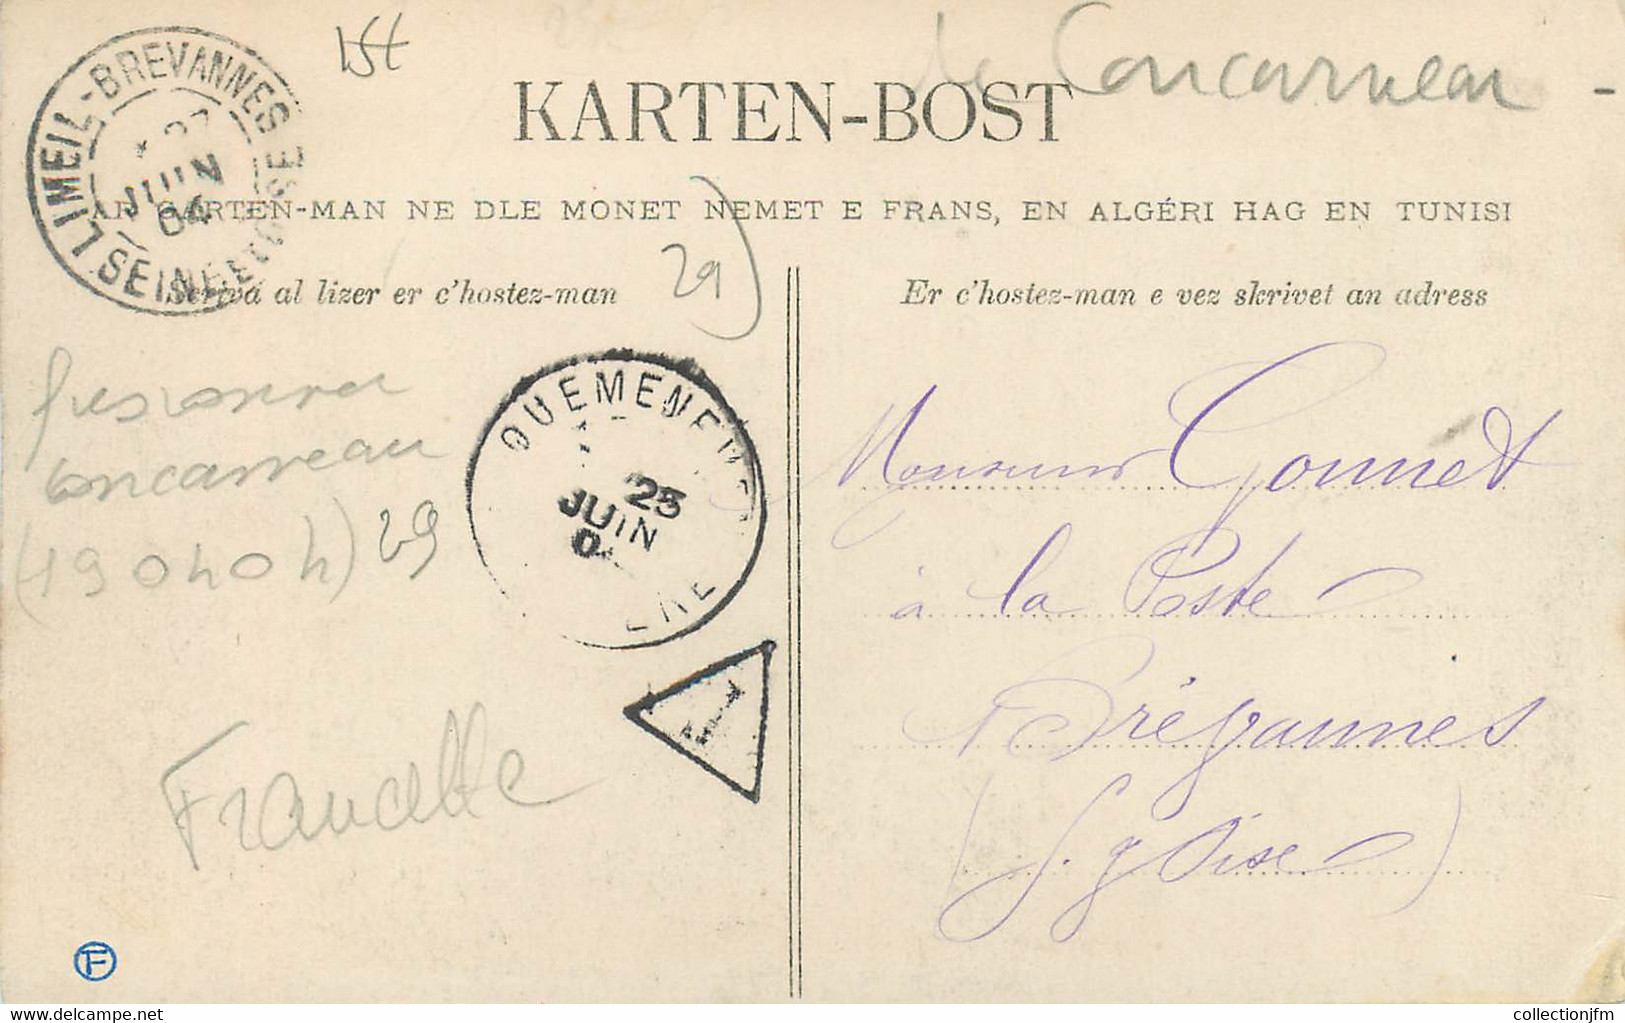 LIMEIL-BREVANNES
SEINE ET OISE
27
JUIN
04
15t
de Concarneau -
KARTEN-BOST
AR GARTEN-MAN NE DLE MONET NEMET E FRANS, EN ALGÉRI HAG EN TUNISI
29)
Scrivá al lizer er c'hostez-man
Er c'hostez-man e vez skrivet an adress
concarneau
(190404) 29
QUEMENEVEN
25
JUIN
0
Monsieur Gonnet
à la Poste
Brévannes
(S. & Oise)
T
F
www.delcampe.net
collectionjfm